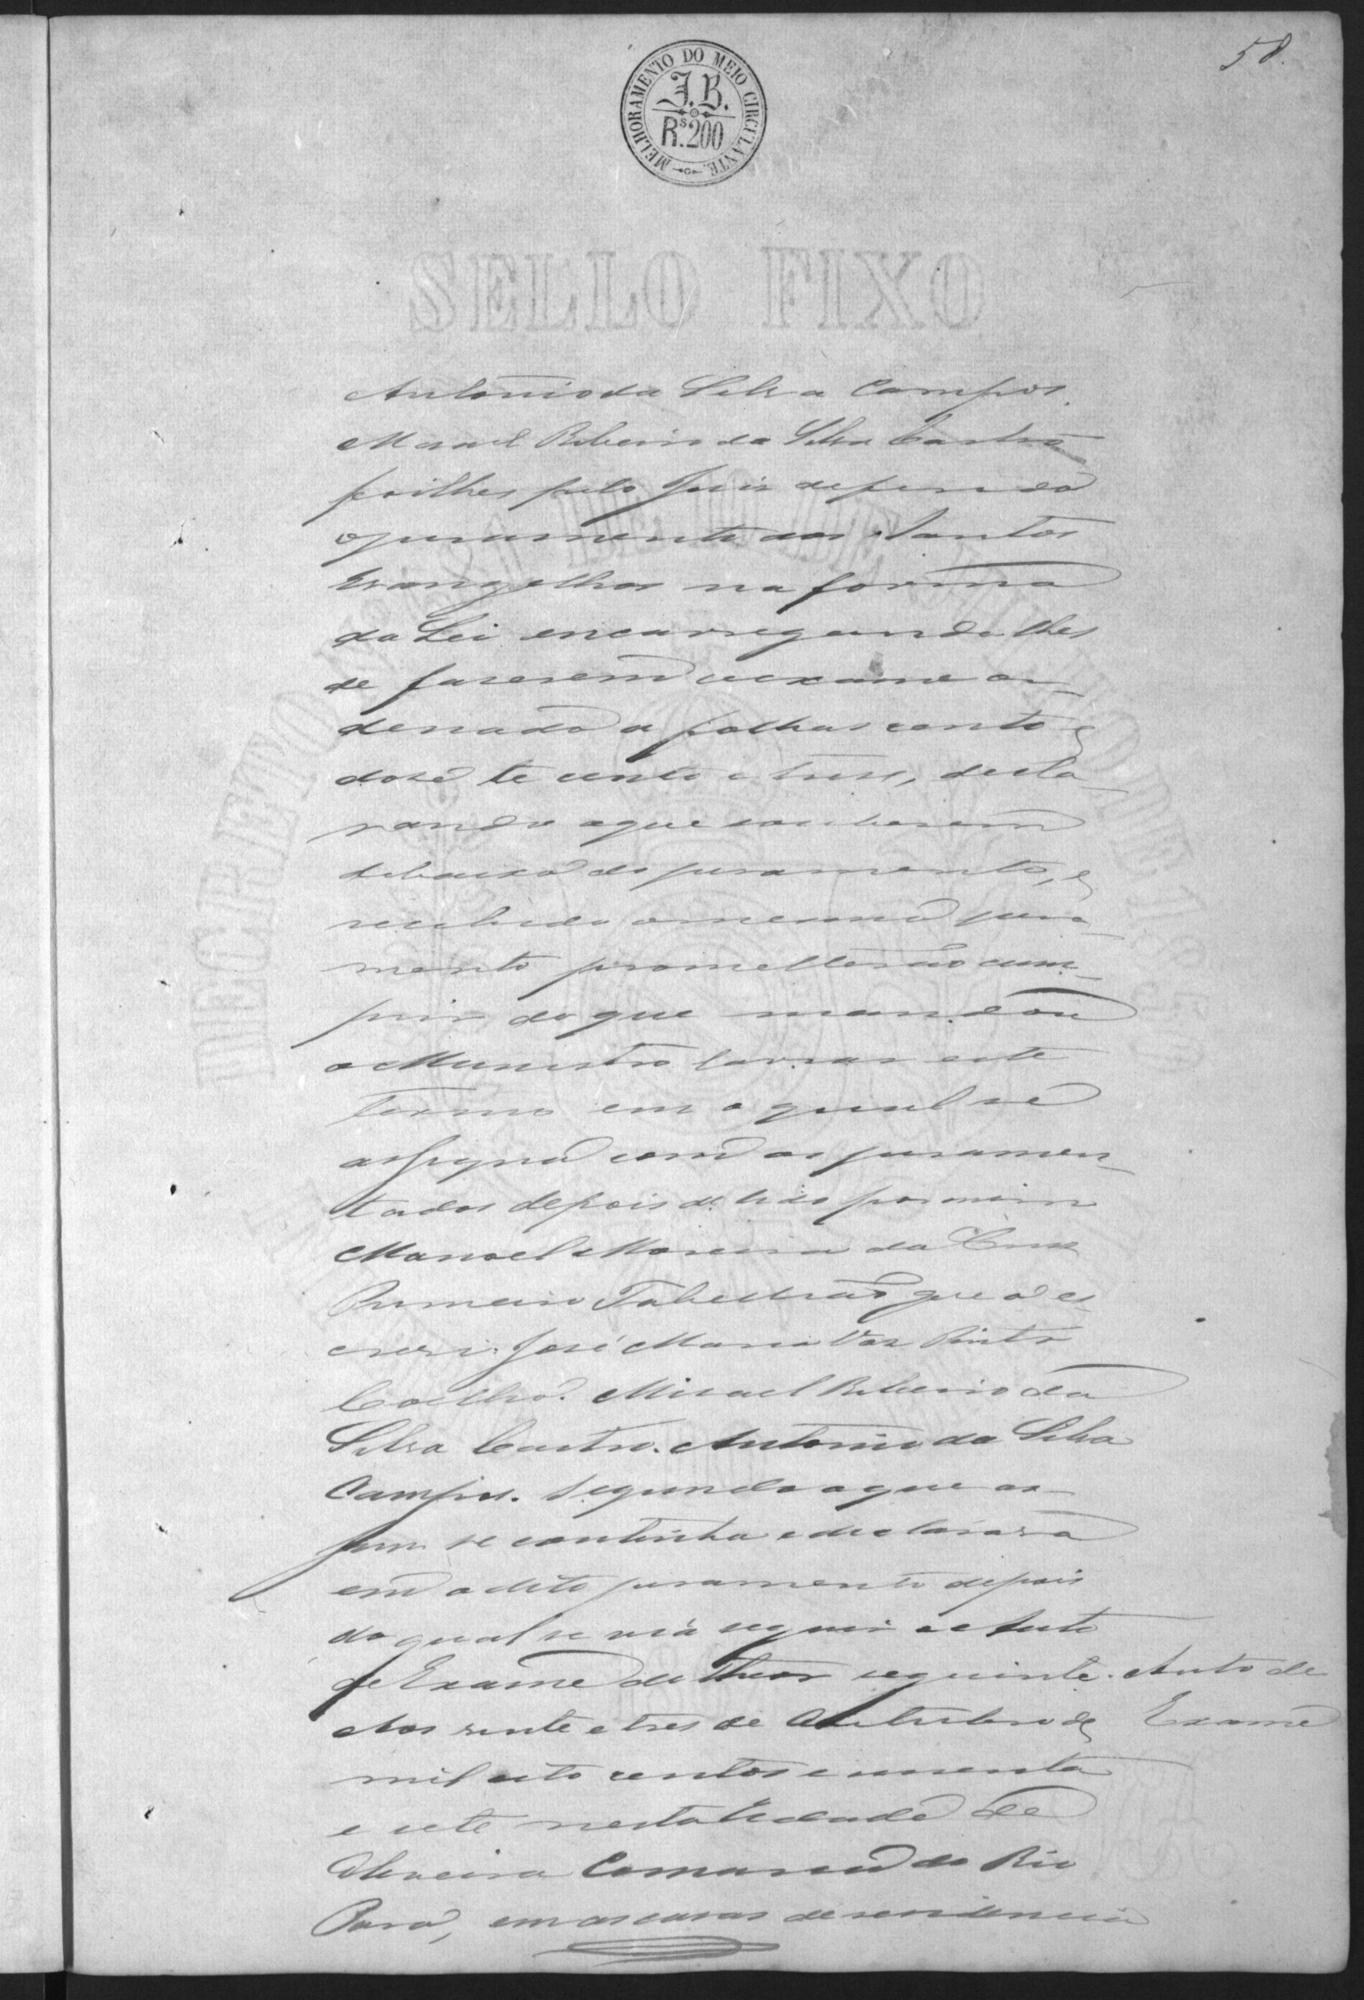 58.
MELHORAMENTO DO MEIO CIRCULANTE.
J. B.
Rs. 200
SELLO FIXO
DECRETO
Antonio da Silva Campos.
Misael Ribeiro da Silva Castro
foi lhes pelo Juis deferido
o juramento dos Santos
Evangelhos na forma
da Lei encarregando lhes
de faserem o exame or-
denado a folhas cento e
dose te cento e trese, decla-
rando o que souberem
debaixo do juramento, e
recebido o mesmo jura-
mento prometterão cum-
prir do que mandou
o Menistro lavrar este
termo em o qual se
assigna com os juramen-
tados depois de lido por mim
Manoel Moreira da Crus
Primeiro Tabellião que o es-
crevi. José Maria Vas Pinto
Coelho. Misael Ribeiro da
Silva Castro. Antonio da Silva
Campos. Segundo o que as-
sim se continha e declarava
em o dito juramento depois
do qual se via seguir o Auto
de Exame do theor seguinte. Auto de
Exame
Aos vinte e tres de Outubro de
mil oito centos e
e sete nesta Cidade de
Oliveira Comarca do Rio
Pará, em as casas de residencia